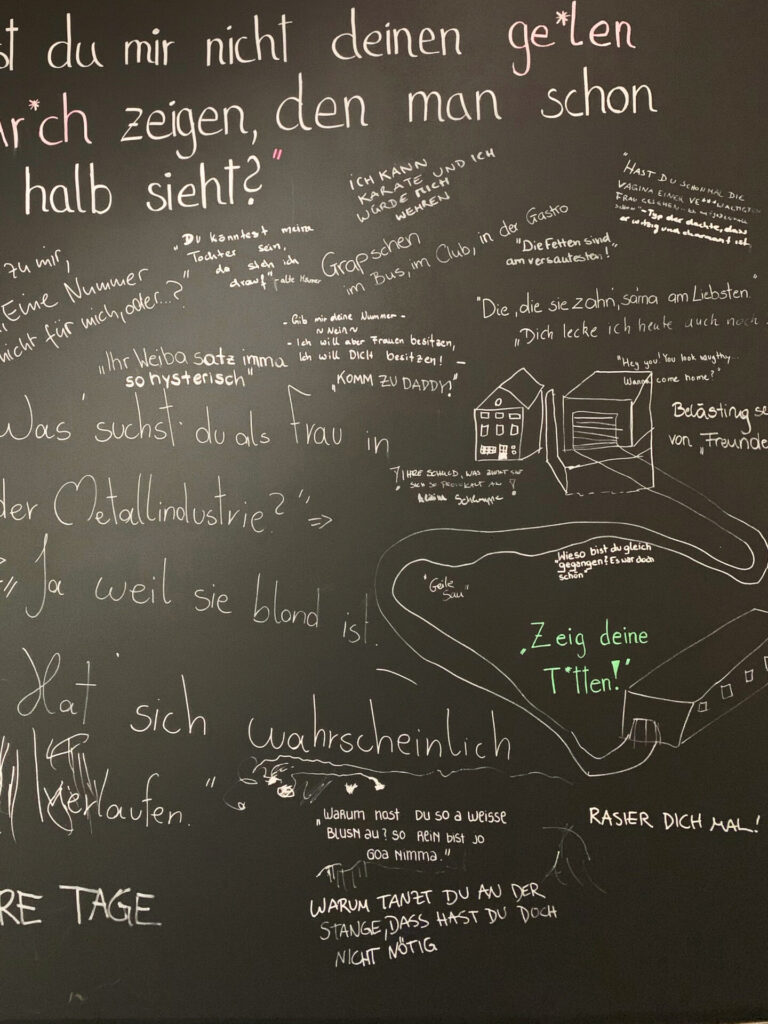 st du mir nicht deinen ge*len
Ar*ch zeigen, den man schon
halb sieht?"
ICH KANN
KARATE UND ICH
WÜRDE MICH
WEHREN
"HAST DU SCHONMAL DIE
VAGINA EINER
FRAU GESEHEN
- Typ der dachte, dass
er witzig und charmant ist
zu mir,
"Eine Nummer
nicht für mich, oder...?"
"Du könntest meine
Tochter sein,
da steh ich
drauf" - alte Männer
Grapschen
im Bus, im Club, in der Gastro
"Die Fetten sind
am versautesten!"
"Die, die sie zahn, sa'ma am Liebsten."
"Dich lecke ich heute auch noch
"Ihr Weiba satz imma
so hysterisch"
- Gib mir deine Nummer -
~ Nein ~
- Ich will aber Frauen besitzen,
Ich will DICH besitzen! -
"KOMM ZU DADDY!"
"Hey you! You look naughty...
Wanna come home?"
Belästing se
von "Freunde
Was suchst du als Frau in
der Metallindustrie?" =>
"Ja weil sie blond ist.
Hat sich wahrscheinlich
verlaufen."
IHRE SCHULD, WAS ZIEHT SIE
SICH SO PROVOKANT AN
Schlampe
"Wieso bist du gleich
gegangen? Es war doch
schön"
"Geile
Sau"
"Zeig deine
T*tten!"
"WARUM HOST DU SO A WEISSE
BLUSN AU? SO REIN BIST JO
GOA NIMMA."
RASIER DICH MAL!
RE TAGE
WARUM TANZT DU AN DER
STANGE, DASS HAST DU DOCH
NICHT NÖTIG